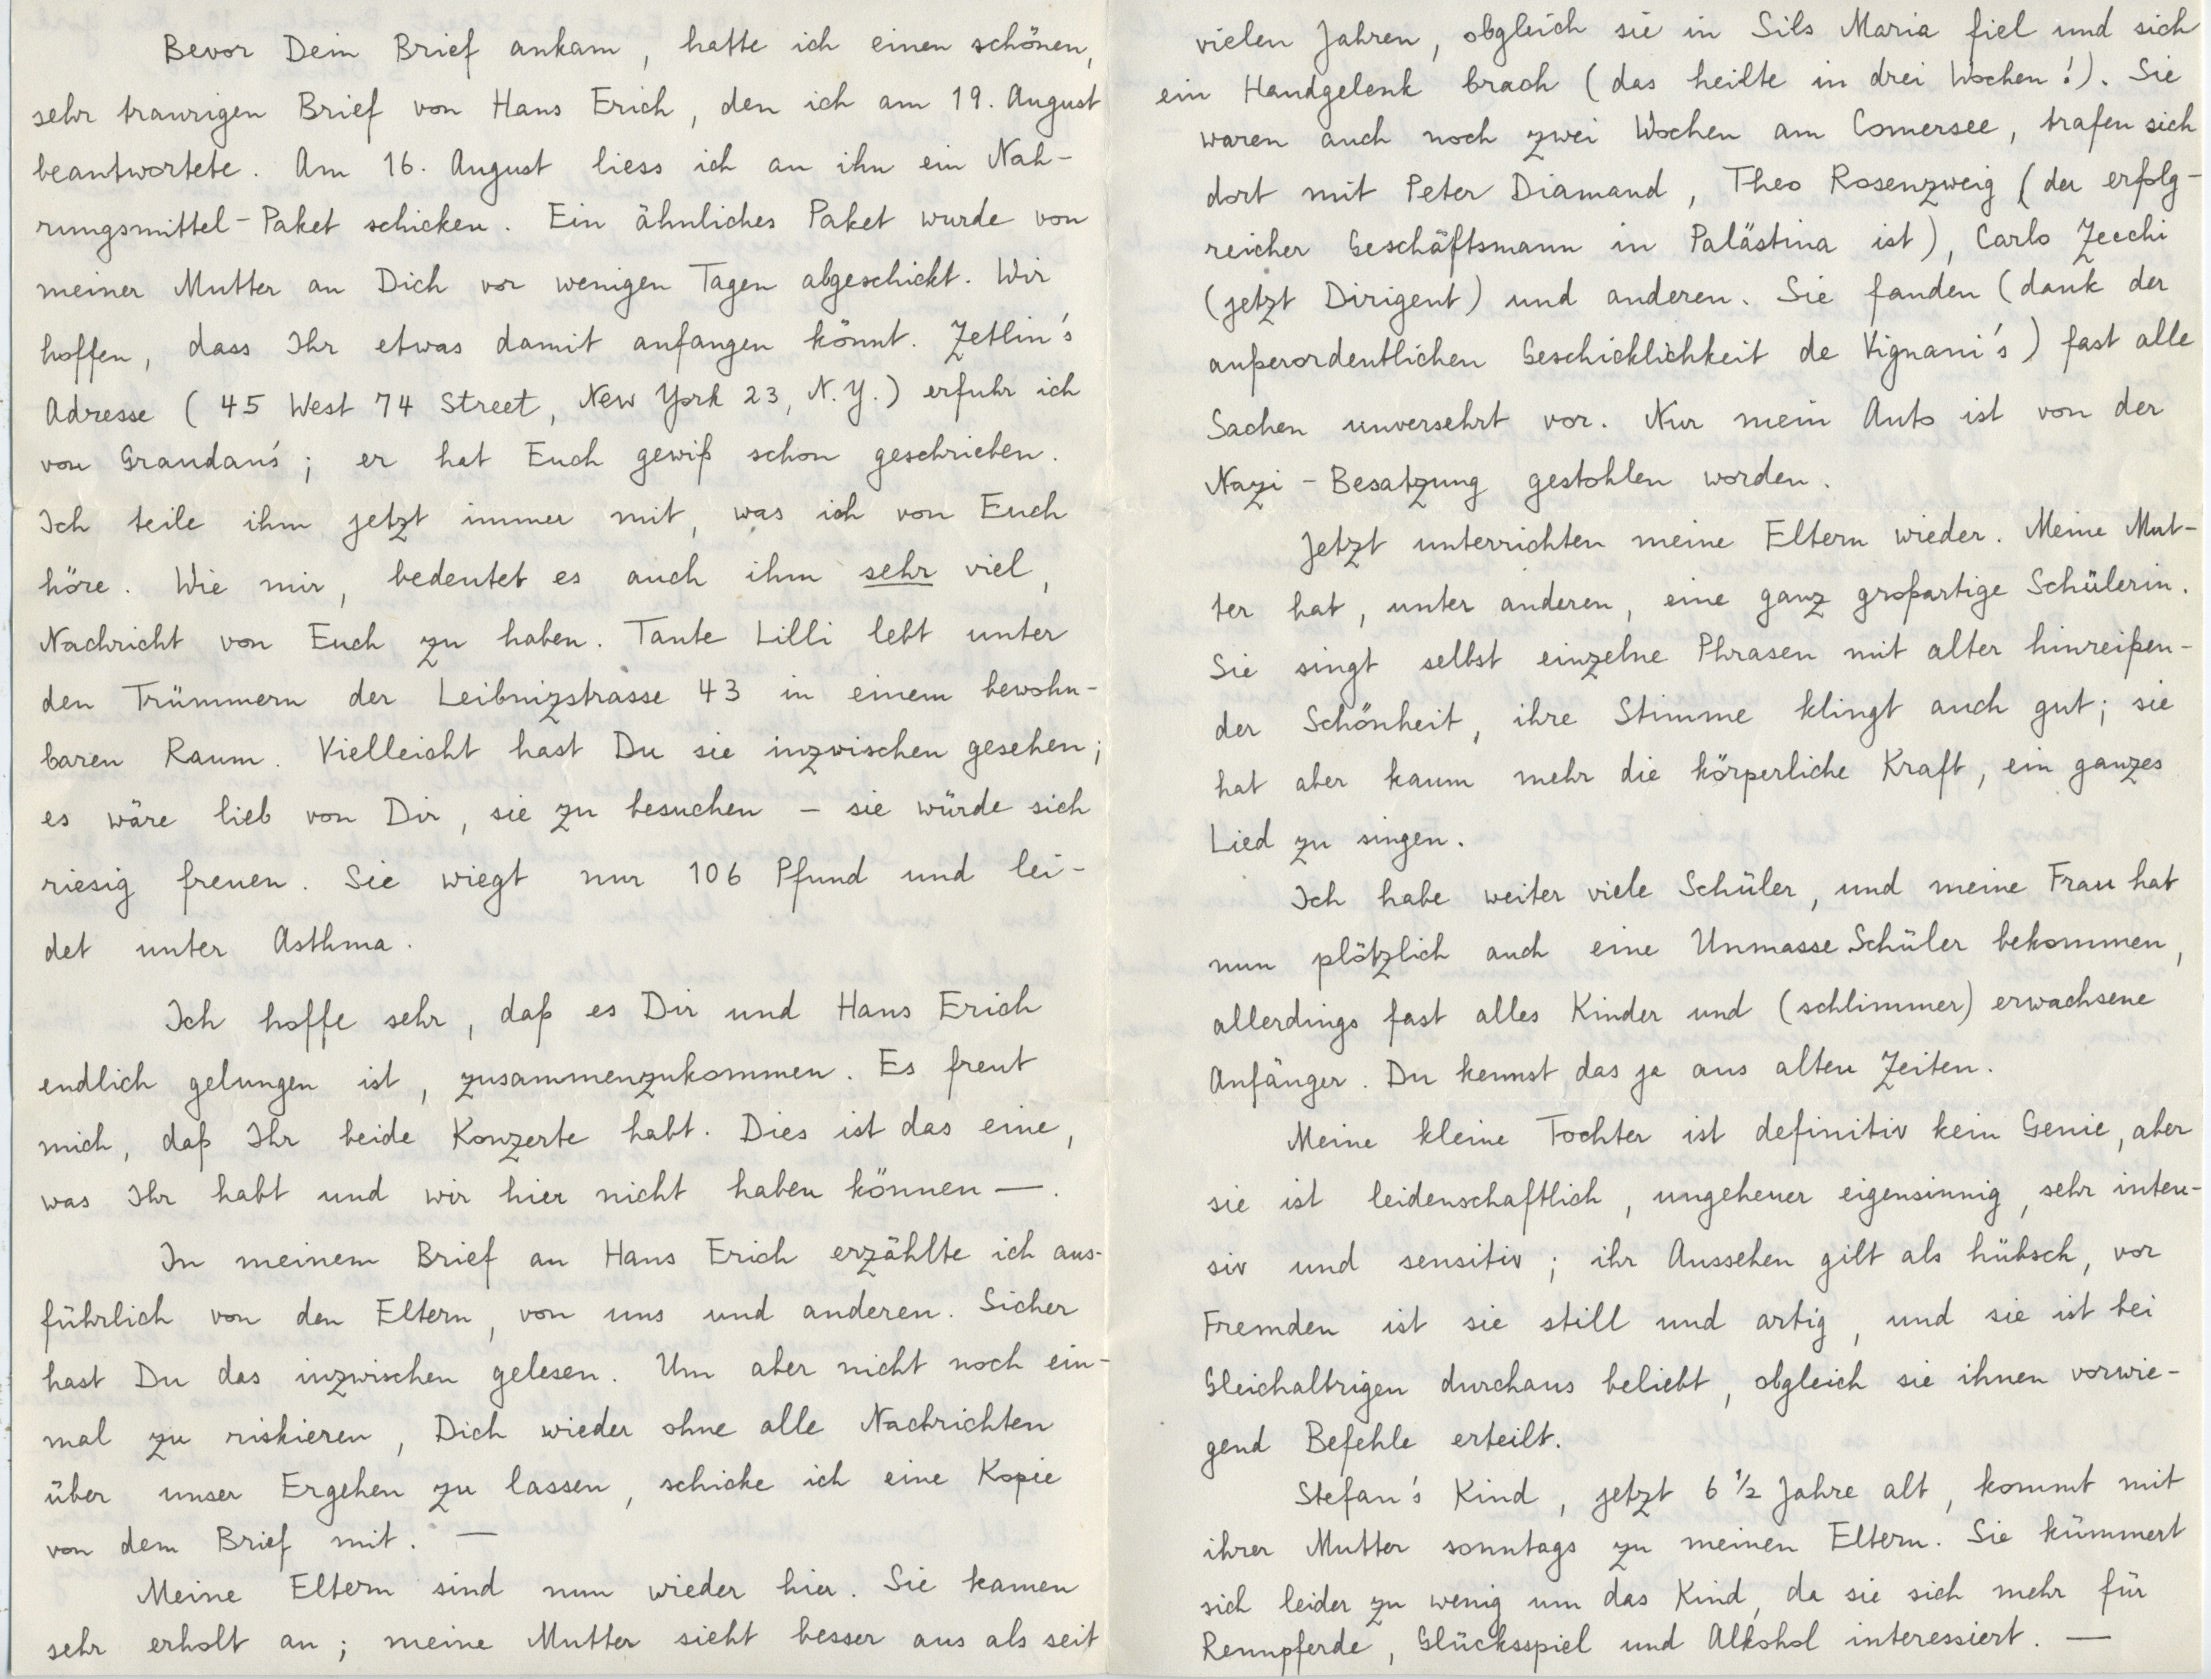 Bevor Dein Brief ankam, hatte ich einen schönen,
sehr traurigen Brief von Hans Erich, den ich am 19. August
beantwortete. Am 16. August liess ich an ihn ein Nah-
rungsmittel-Paket schicken. Ein ähnliches Paket wurde von
meiner Mutter an Dich vor wenigen Tagen abgeschickt. Wir
hoffen, dass Ihr etwas damit anfangen könnt. Zetlin's
Adresse (45 West 74 Street, New York 23, N.Y.) erfuhr ich
von Graudan's; er hat Euch gewiß schon geschrieben.
Ich teile ihm jetzt immer mit, was ich von Euch
höre. Wie mir, bedeutet es auch ihm sehr viel,
Nachricht von Euch zu haben. Tante Lilli lebt unter
den Trümmern der Leibnizstrasse 43 in einem bewohn-
baren Raum. Vielleicht hast Du sie inzwischen gesehen;
es wäre lieb von Dir, sie zu besuchen – sie würde sich
riesig freuen. Sie wiegt nur 106 Pfund und lei-
det unter Asthma.
Ich hoffe sehr, daß es Dir und Hans Erich
endlich gelungen ist, zusammenzukommen. Es freut
mich, daß Ihr beide Konzerte habt. Dies ist das eine,
was Ihr habt und wir hier nicht haben können —.
In meinem Brief an Hans Erich erzählte ich aus-
führlich von den Eltern, von uns und anderen. Sicher
hast Du das inzwischen gelesen. Um aber nicht noch ein-
mal zu riskieren, Dich wieder ohne alle Nachrichten
über unser Ergehen zu lassen, schicke ich eine Kopie
von dem Brief mit. —
Meine Eltern sind nun wieder hier. Sie kamen
sehr erholt an; meine Mutter sieht besser aus als seit
vielen Jahren, obgleich sie in Sils Maria fiel und sich
ein Handgelenk brach (das heilte in drei Wochen!). Sie
waren auch noch zwei Wochen am Comersee, trafen sich
dort mit Peter Diamand, Theo Rosenzweig (der erfolg-
reicher Geschäftsmann in Palästina ist), Carlo Zecchi
(jetzt Dirigent) und anderen. Sie fanden (dank der
außerordentlichen Geschicklichkeit de Vignani's) fast alle
Sachen unversehrt vor. Nur mein Auto ist von der
Nazi-Besatzung gestohlen worden.
Jetzt unterrichten meine Eltern wieder. Meine Mut-
ter hat, unter anderen, eine ganz großartige Schülerin.
Sie singt selbst einzelne Phrasen mit alter hinreißen-
der Schönheit, ihre Stimme klingt auch gut; sie
hat aber kaum mehr die körperliche Kraft, ein ganzes
Lied zu singen.
Ich habe weiter viele Schüler, und meine Frau hat
nun plötzlich auch eine Unmasse Schüler bekommen,
allerdings fast alles Kinder und (schlimmer) erwachsene
Anfänger. Du kennst das ja aus alten Zeiten.
Meine kleine Tochter ist definitiv kein Genie, aber
sie ist leidenschaftlich, ungeheuer eigensinnig, sehr inten-
siv und sensitiv; ihr Aussehen gilt als hübsch, vor
Fremden ist sie still und artig, und sie ist bei
Gleichaltrigen durchaus beliebt, obgleich sie ihnen vorwie-
gend Befehle erteilt.
Stefan's Kind, jetzt 6 1/2 Jahre alt, kommt mit
ihrer Mutter sonntags zu meinen Eltern. Sie kümmert
sich leider zu wenig um das Kind, da sie sich mehr für
Rennpferde, Glücksspiel und Alkohol interessiert. —